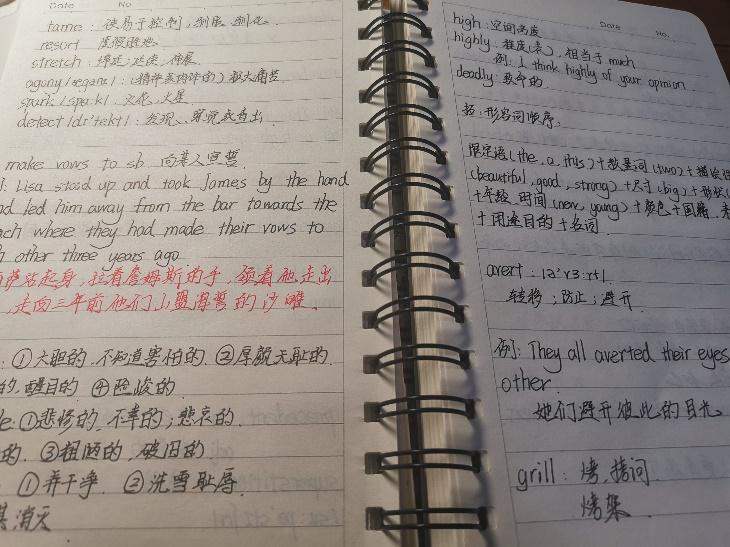 Date No
tame: 易于控制, 驯服, 驯化.
resort 度假胜地
stretch: 伸延, 延展, 伸展
agony /ˈæɡəni/: (精神或肉体的) 极大痛苦
spark /spaːk/ 火花, 火星
detect /dɪ'tekt/: 发现、察觉或查出
make vows to sb 向某人宣誓
: Lisa stood up and took James by the hand
led him away from the bar towards the
where they had made their vows to
other three years ago.
站起身, 拉着詹姆斯的手, 领着他走出
, 走向三年前他们山盟海誓的沙滩.
: ①大胆的, 不知道害怕的 ②厚颜无耻的
的, 醒目的 ④险峻的
①悲惨的, 不幸的; 悲哀的
的 ③粗陋的, 破旧的
: ①弄干净 ②洗雪耻辱
消灭
Date No.
high: 空间高度
highly: 程度(表), 相当于 much
例: I think highly of your opinion
deadly: 要命的
拓: 形容词顺序:
限定语(the, a, this)+数量词(two)+描绘性
(beautiful, good, strong)+尺寸(big)+形状(
+年龄 时间(new, young)+颜色+国籍
+用途目的+名词
avert: /ə'vɜ:rt/.
转移; 防止; 避开
例: They all averted their eyes
other.
她们避开彼此的目光
grill: 烤, 拷问.
烤架